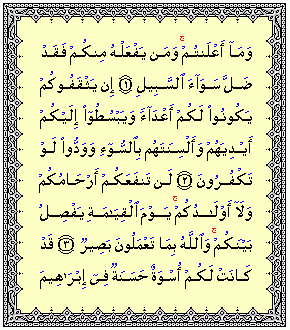 وَمَآ أَعۡلَنتُمۡۚ وَمَن يَفۡعَلۡهُ مِنكُمۡ فَقَدۡ
ضَلَّ سَوَآءَ ٱلسَّبِيلِ ١ إِن يَثۡقَفُوكُمۡ
يَكُونُواْ لَكُمۡ أَعۡدَآءٗ وَيَبۡسُطُوٓاْ إِلَيۡكُمۡ
أَيۡدِيَهُمۡ وَأَلۡسِنَتَهُم بِٱلسُّوٓءِ وَوَدُّواْ لَوۡ
تَكۡفُرُونَ ٢ لَن تَنفَعَكُمۡ أَرۡحَامُكُمۡ
وَلَآ أَوۡلَٰدُكُمۡۚ يَوۡمَ ٱلۡقِيَٰمَةِ يَفۡصِلُ
بَيۡنَكُمۡۚ وَٱللَّهُ بِمَا تَعۡمَلُونَ بَصِيرٞ ٣ قَدۡ
كَانَتۡ لَكُمۡ أُسۡوَةٌ حَسَنَةٞ فِيٓ إِبۡرَٰهِيمَ